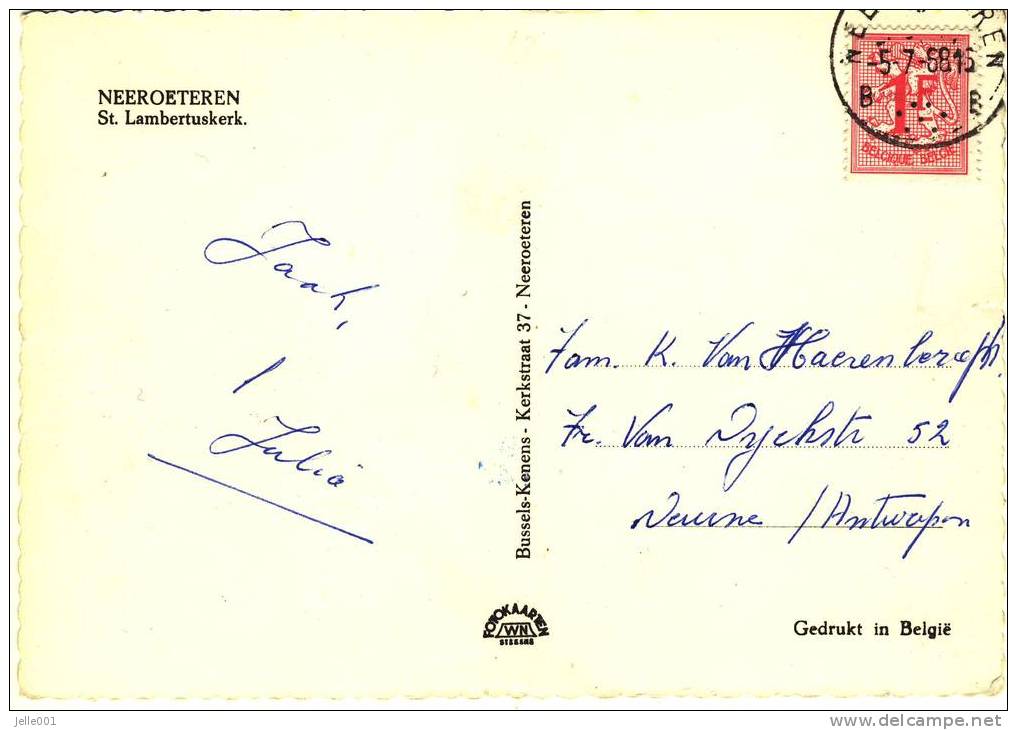 NEEROETEREN
St. Lambertuskerk.
Jaak,
Julia
Bussels-Kenens - Kerkstraat 37 - Neeroeteren
-5-7-68 16
B B
1F
BELGIQUE BELGIE
Fam. K. Van Haerenbergh
Fr. Van Dyckstr 52
Deurne / Antwerpen
FOTOKAARTEN
WN
Gedrukt in België
jelle001
www.delcampe.net